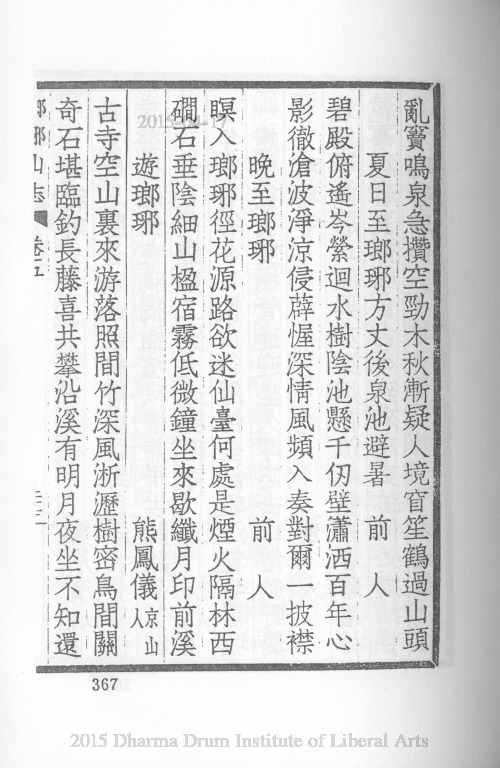 亂竇鳴泉急攢空勁木秋漸疑人境窅笙鶴過山頭
夏日至瑯琊方丈後泉池避暑 前人
碧殿俯遙岑縈迴水樹陰池懸千仞壁瀟洒百年心
影徹滄波淨涼侵薜幄深情風頻入奏對爾一披襟
晚至瑯琊 前人
暝入瑯琊徑花源路欲迷仙臺何處是煙火隔林西
磵石垂陰細山楹宿霧低微鐘坐來歇纖月印前溪
遊瑯琊 熊鳳儀京山人
古寺空山裏來游落照間竹深風淅瀝樹密鳥間關
奇石堪臨釣長藤喜共攀沿溪有明月夜坐不知還
瑯琊山志 卷五
367
2015-04-17
2015 Dharma Drum Institute of Liberal Arts